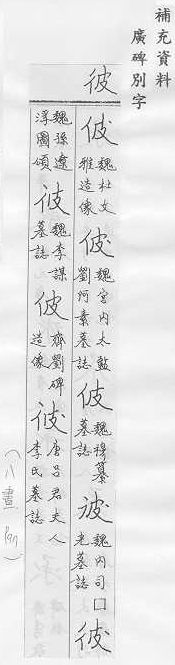 補充資料
廣碑別字
彼
佊 魏杜文雅造像 彼 魏宮內太監劉阿素墓誌 佊 魏穆纂墓誌 波 魏內司囗光墓誌 彼
魏孫遼浮圖頌 彼 魏李謀墓誌 彼 齊劉碑造像 彼 唐呂君夫人李氏墓誌
(八畫